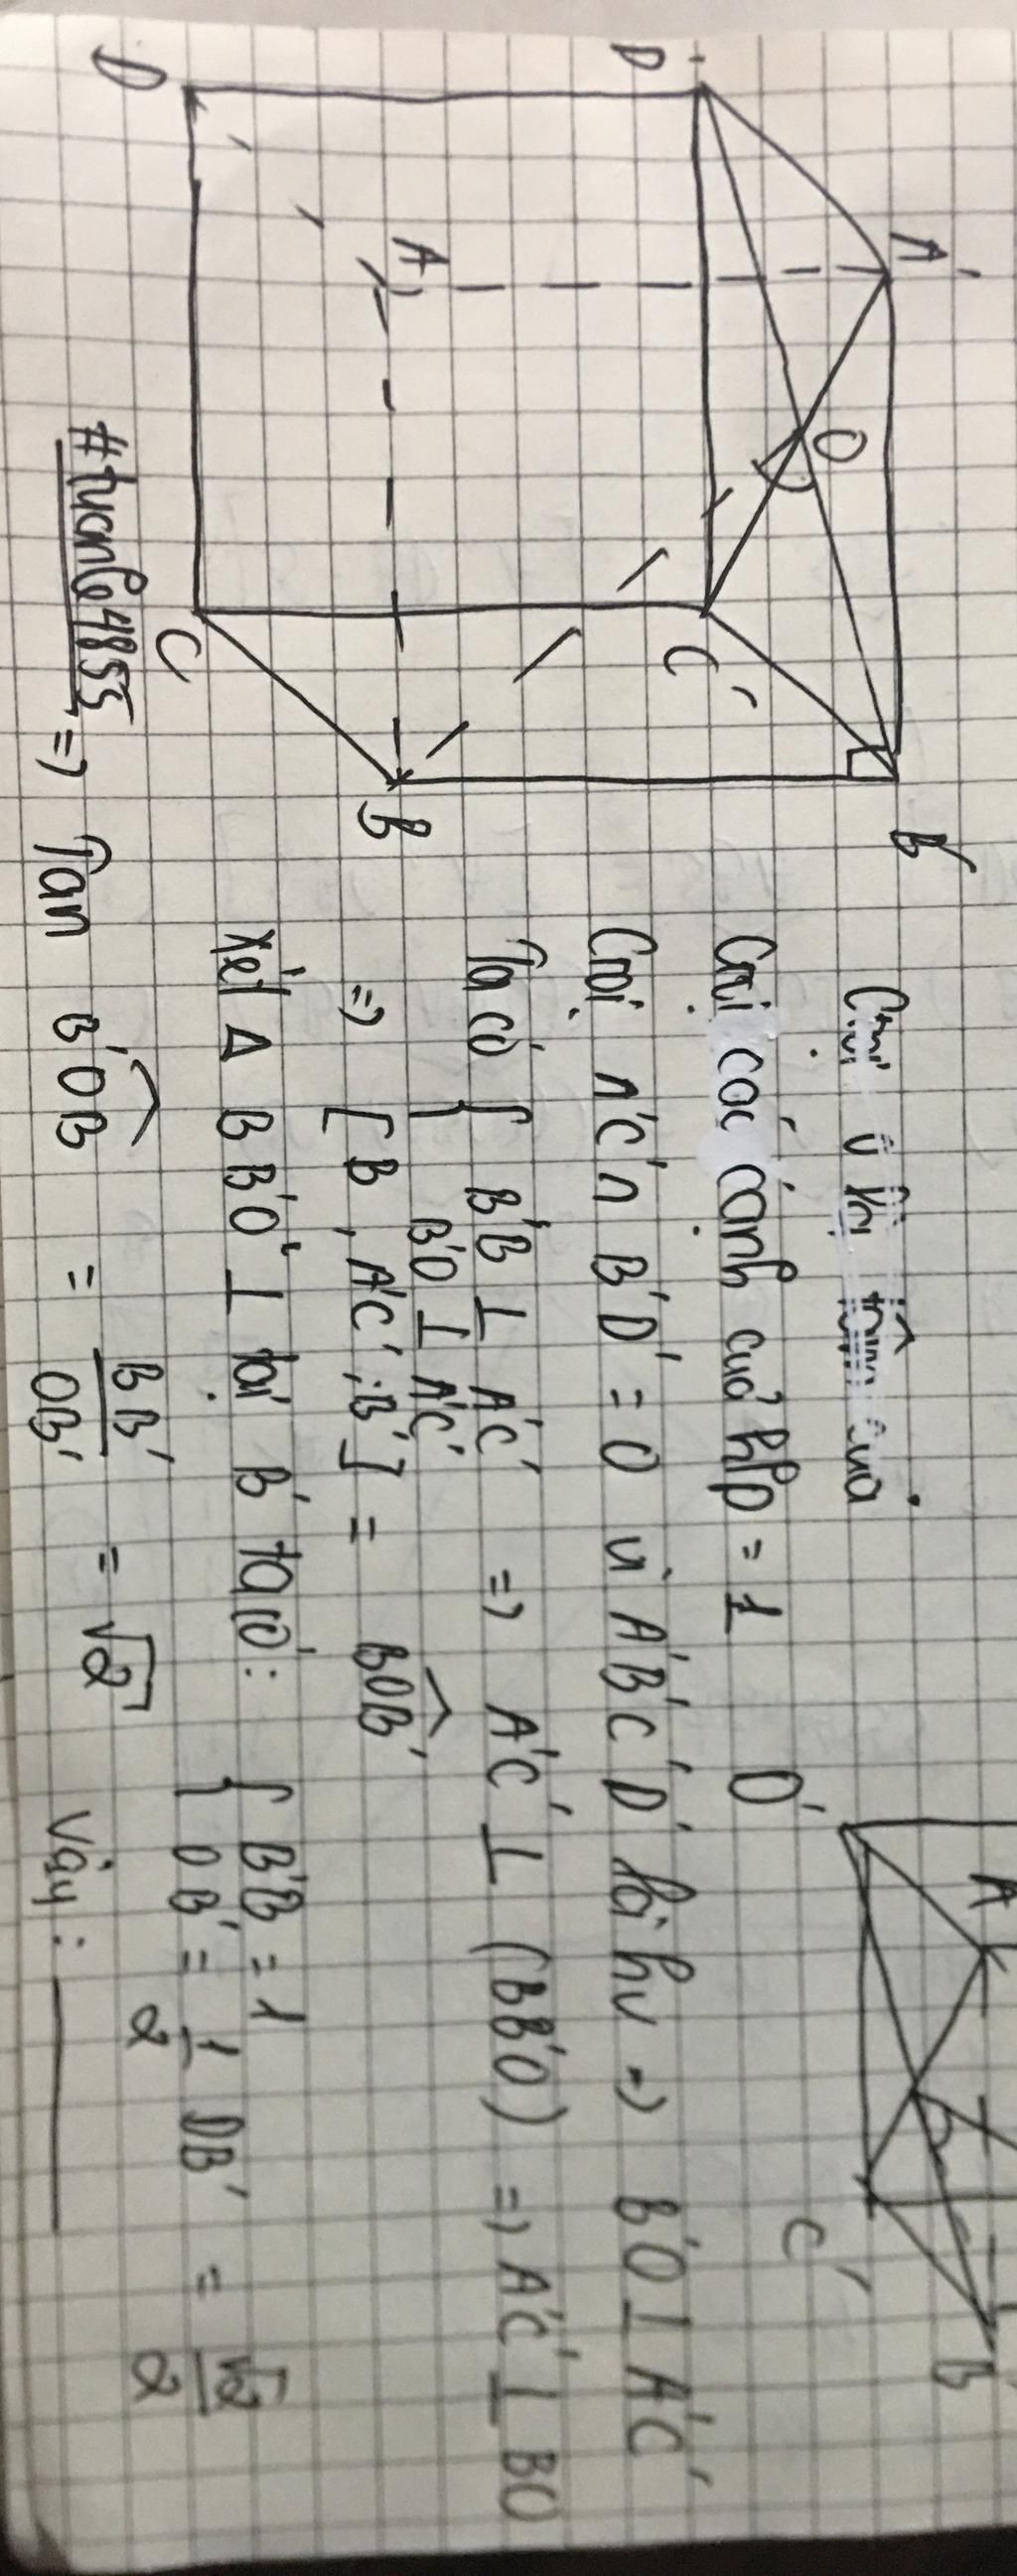 D'
A'
O
B'
C'
A
D
C
B
D'
A
C'
B
Gọi các cạnh của hlp = 1
Gọi A'C' ∩ B'D' = O vì A'B'C'D' là hv => B'O ⊥ A'C'
Ta có { B'B ⊥ A'C'
B'O ⊥ A'C' => A'C' ⊥ (BB'O) => A'C' ⊥ BO
=> [B, A'C', B'] = BOB'
Xét Δ BB'O ⊥ tại B' ta có: { B'B = 1
OB' = 1/2 DB' = √2/2
#tuanle4855 => Tan B'OB = BB'/OB' = √2
Vậy: